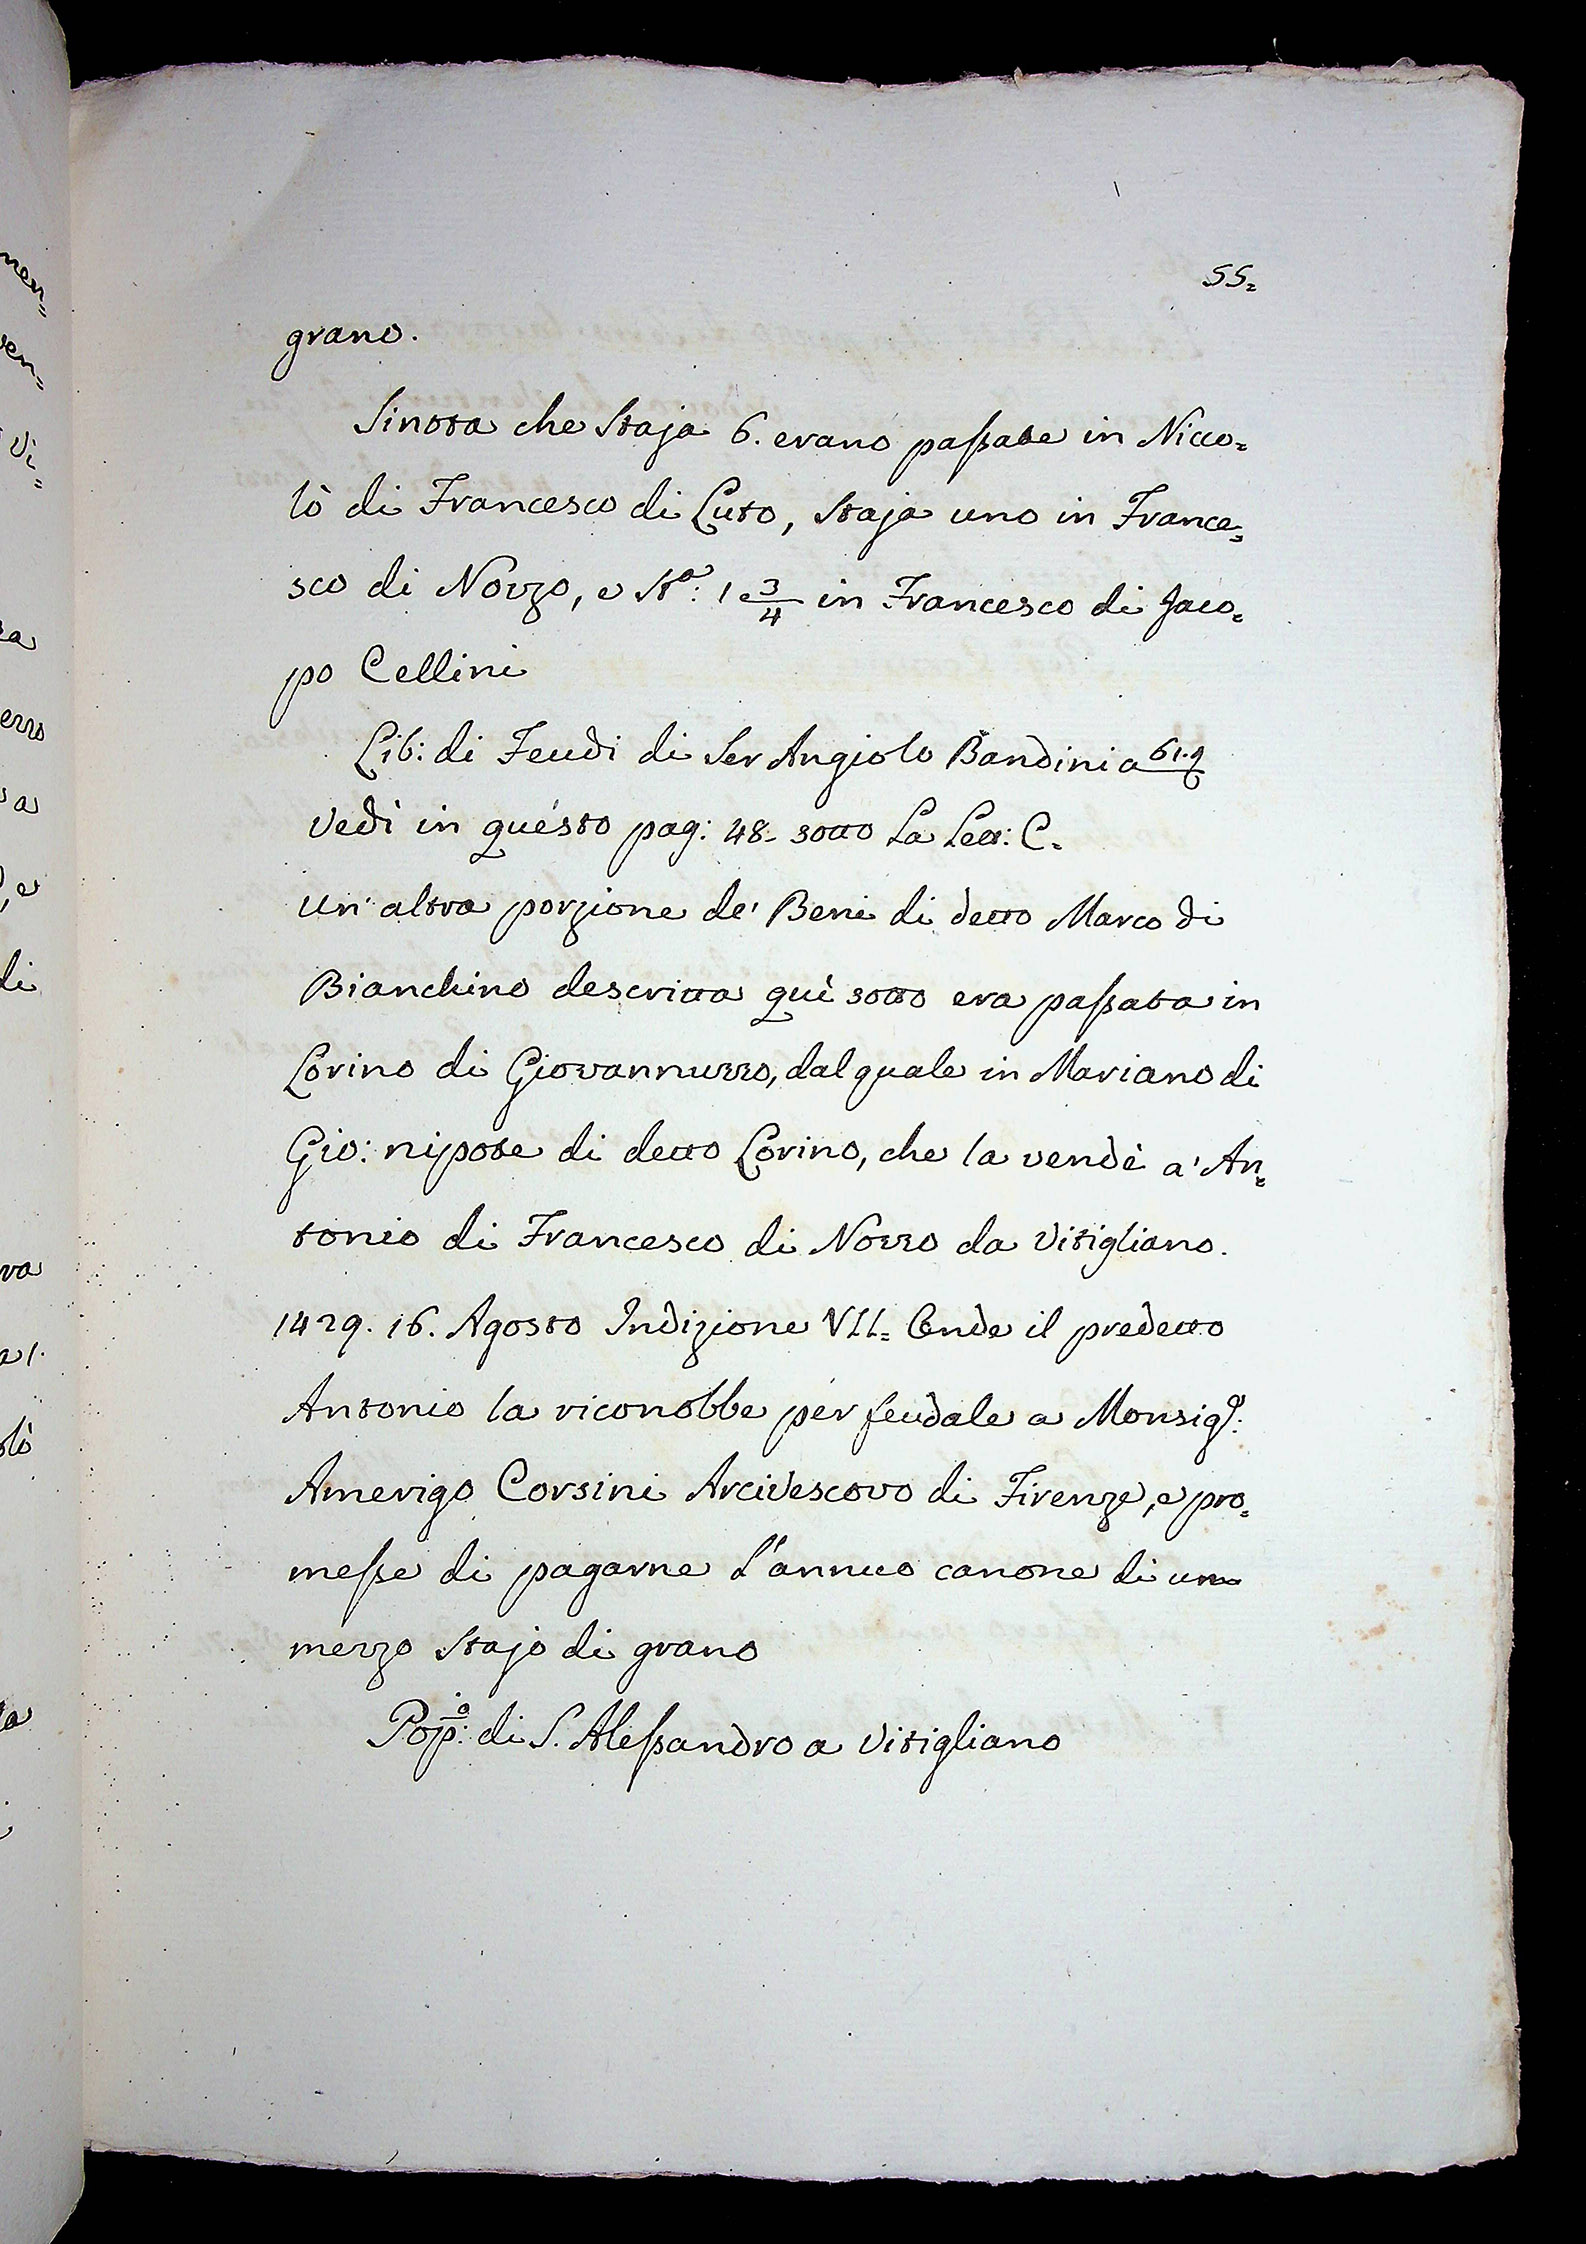 55.
grano.
Si nota che Staja 6. erano passate in Nicco=
lò di Francesco di Luto, Staja uno in France=
sco di Nozzo, e St.ª: 1 3/4 in Francesco di Jaco=
po Cellini
Lib: di Feudi di Ser Angiolo Bandini a 61.
Vedi in questo pag: 48. sotto La Lett: C.
Un' altra porzione de' Beni di detto Marco di
Bianchino descritta quì sotto era passata in
Lorino di Giovannuzzo, dal quale in Mariano di
Gio: nipote di detto Lorino, che la vendè a' An=
tonio di Francesco di Nozzo da Vitigliano.
1429. 16. Agosto Indizione VII. Onde il predetto
Antonio la riconobbe per feudale a Monsig.ᵉ:
Amerigo Corsini Arcivescovo di Firenze, e pro=
messe di pagarne l'annuo canone di un
mezzo Stajo di grano
Pop.º: di S. Alessandro a Vitigliano